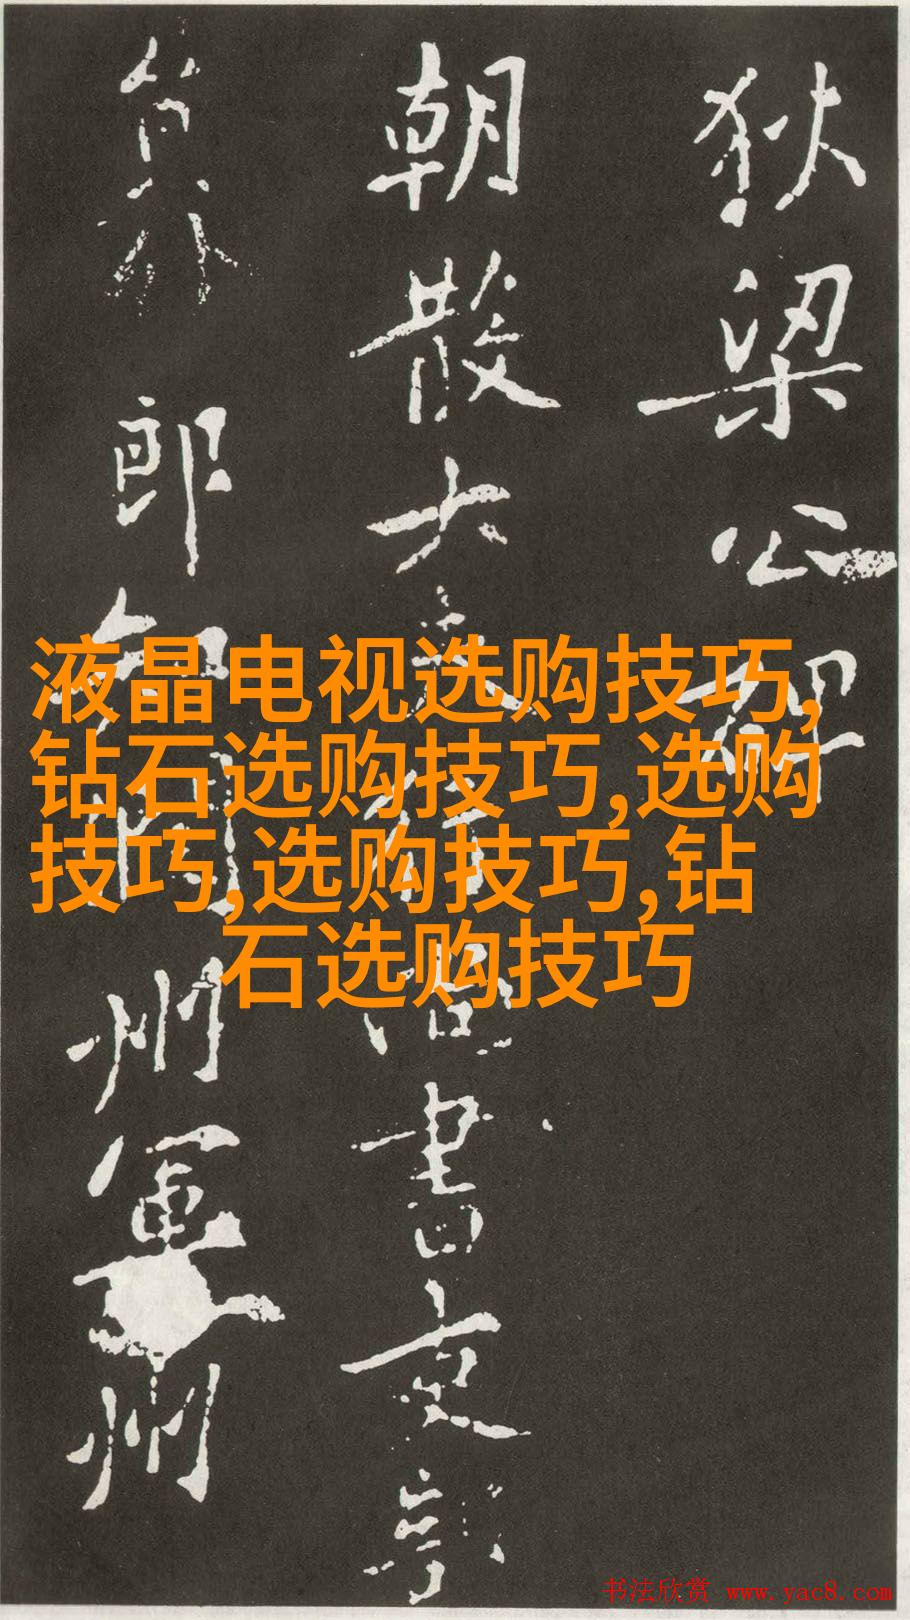 狄梁公碑
朝散大夫行尚書吏部
員外郎知潤州軍州
液晶电视选购技巧,
钻石选购技巧,选购
技巧,选购技巧,钻
石选购技巧
书法欣赏 www.yac8.com